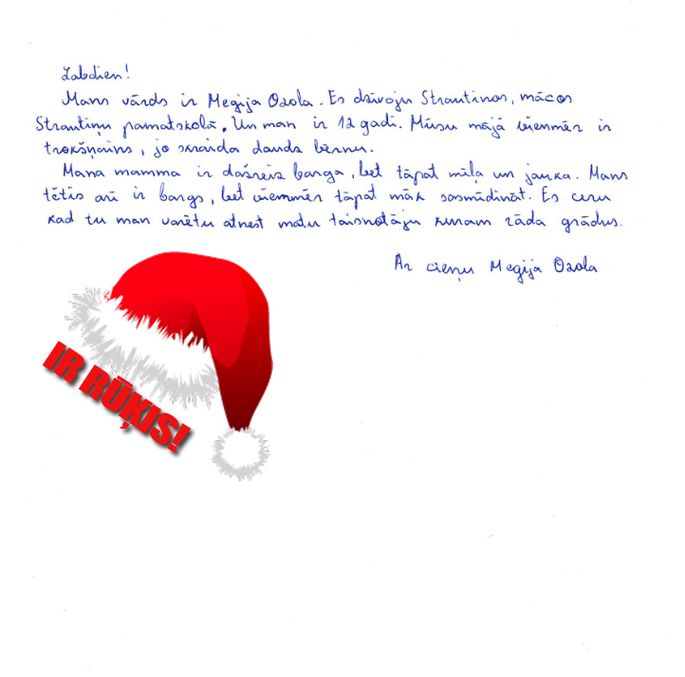 Labdien!
Mans vārds ir Megija Ozola. Es dzīvoju Strautiņos, mācos
Strautiņu pamatskolā. Un man ir 12 gadi. Mūsu mājā vienmēr ir
trokšņains, jo skraida daudz bērnu.
Mana mamma ir dažreiz barga, bet tāpat mīļa un jauka. Mans
tētis arī ir bargs, bet vienmēr tāpat māk sasmīdināt. Es ceru
kad tu man varētu atnest matu taisnotāju kuram rāda grādus.
Ar cieņu Megija Ozola
IR RŪĶIS!